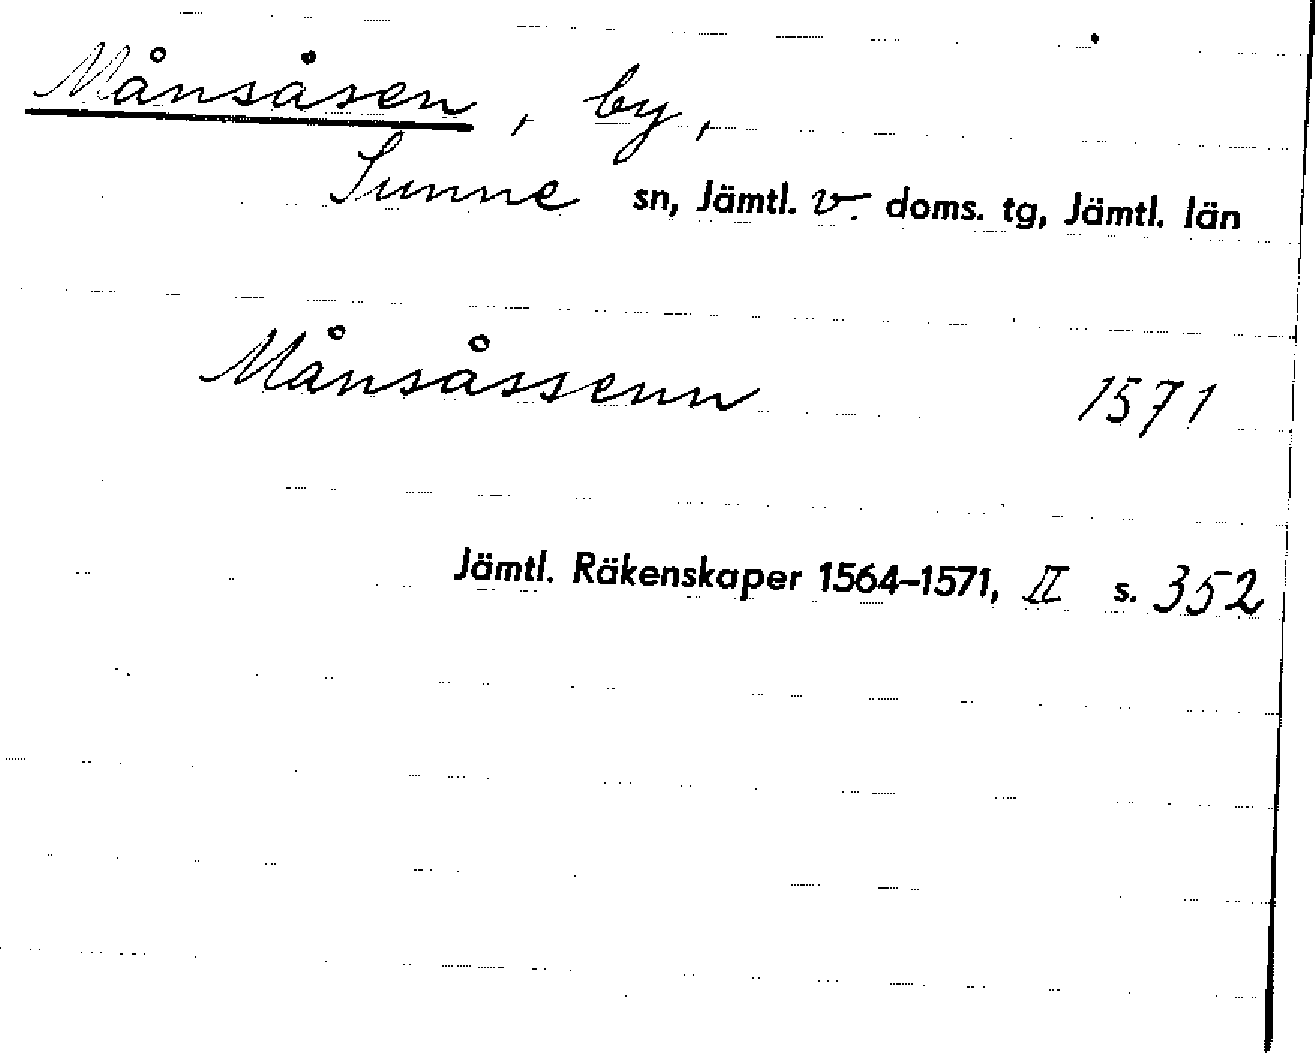 Månsåsen, by,
Sunne sn, Jämtl. v. doms. tg, Jämtl. län
Månsåssenn 1571
Jämtl. Räkenskaper 1564–1571, II s. 352